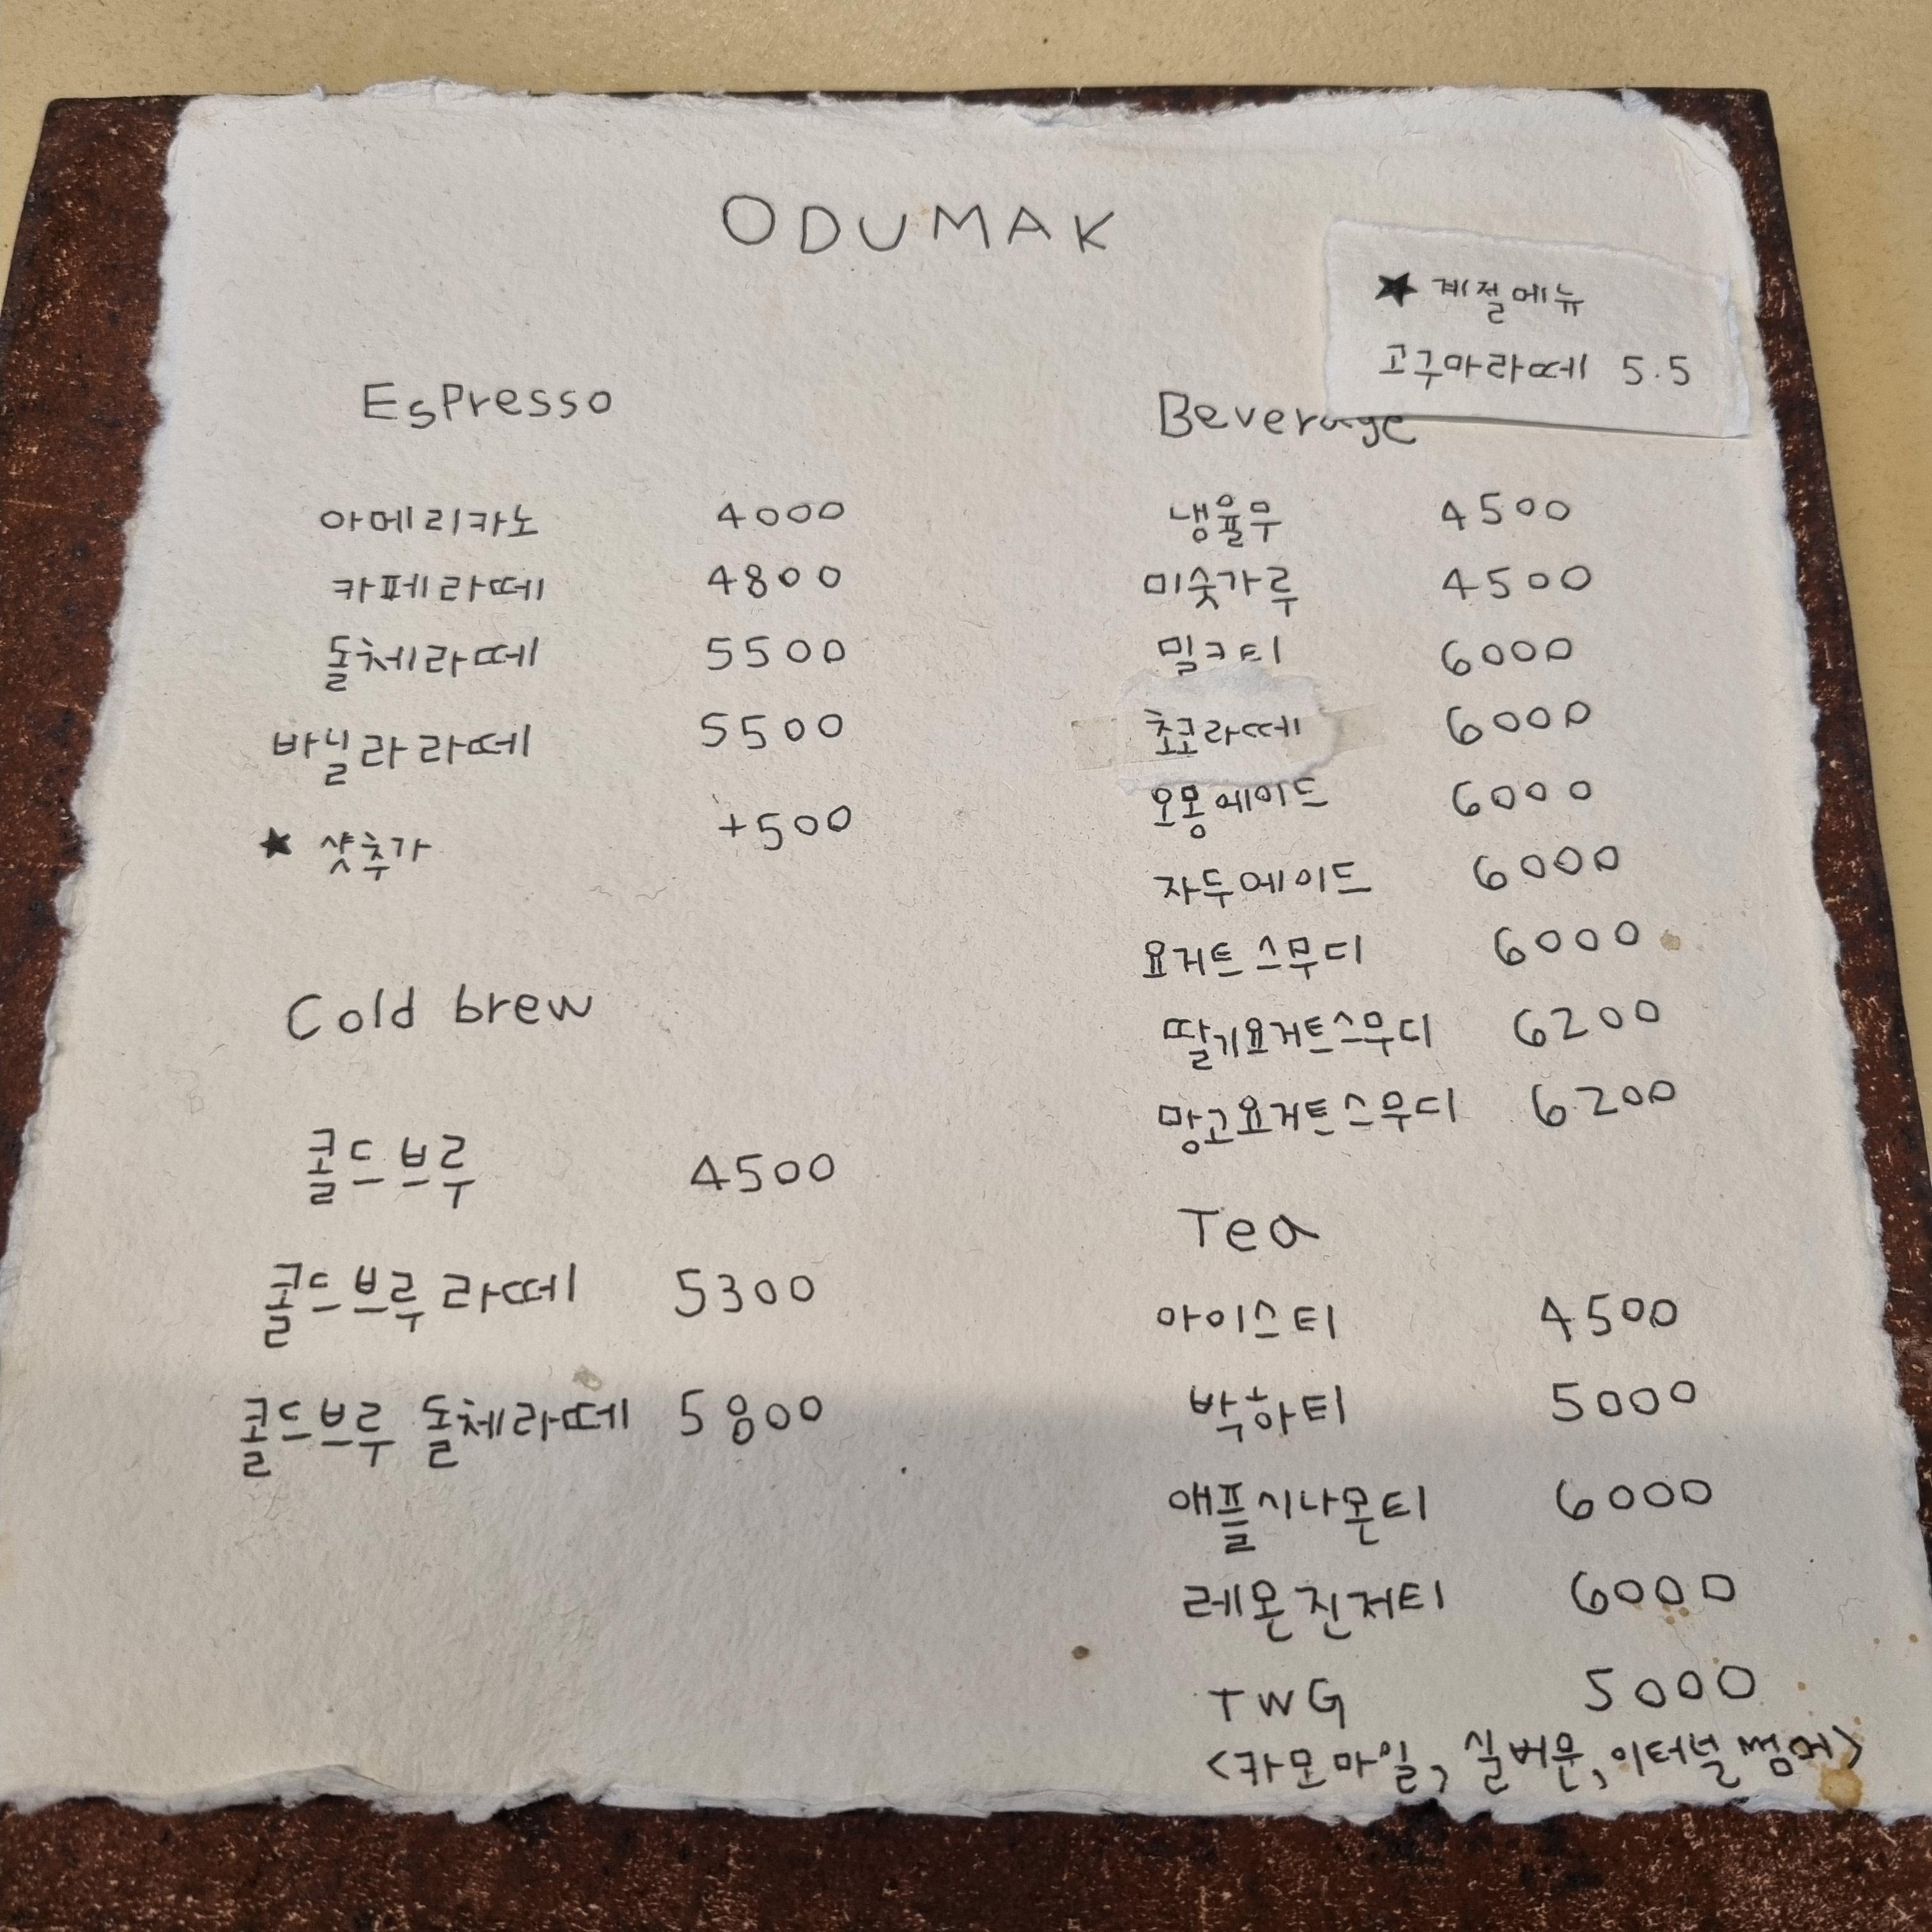 ODUMAK
★ 계절메뉴
고구마라떼 5.5
Espresso
아메리카노 4000
카페라떼 4800
돌체라떼 5500
바닐라라떼 5500
★ 샷추가 +500
Cold brew
콜드브루 4500
콜드브루 라떼 5300
콜드브루 돌체라떼 5800
Beverage
냉율무 4500
미숫가루 4500
밀크티 6000
쵸코라떼 6000
오몽에이드 6000
자두에이드 6000
요거트 스무디 6000
딸기요거트스무디 6200
망고요거트스무디 6200
Tea
아이스티 4500
박하티 5000
애플시나몬티 6000
레몬진저티 6000
TWG 5000
<카모마일, 실버문, 이터널썸머>